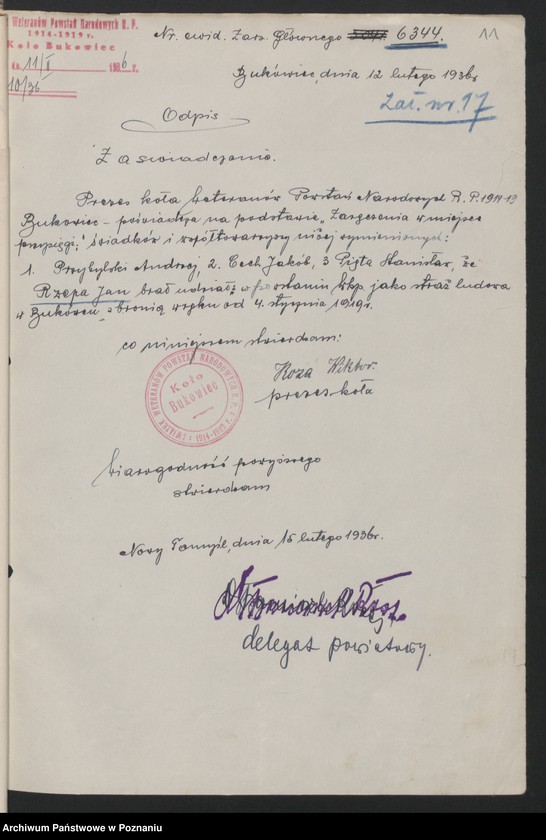 Weteranów Powstań Narodowych R. P.
1914-1919 r.
Koło Bukowiec
dn. 11/II 1936 r.
10/36
Nr. ewid. Zarz. Głównego 6344.
11
Bukówiec, dnia 12 lutego 1936 r
Zał. nr. 17
Odpis
Zaświadczenie.
Prezes koła weteranów Powstań Narodowych R. P. 1914-19
Bukowiec - poświadcza na podstawie „Zaręczenia w miejsce
przysięgi; świadków i współtowarzyszy niżej wymienionych:
1. Przybylski Andrzej, 2. Cech Jakób, 3 Pięta Stanisław, że
Rzepa Jan brał udział w powstaniu Wlkp jako straż ludowa
w Bukówcu, z bronią w ręku od 4. stycznia 1919 r.
co niniejszem stwierdzam:
Koza Wiktor.
prezes koła
ZWIĄZEK WETERANÓW POWSTAŃ NARODOWYCH R. P. 1914-1919
Koło
Bukowiec
Wiarogodność powyższego
stwierdzam
Nowy Tomyśl, dnia 15 lutego 1936 r.
delegat powiatowy.
Archiwum Państwowe w Poznaniu